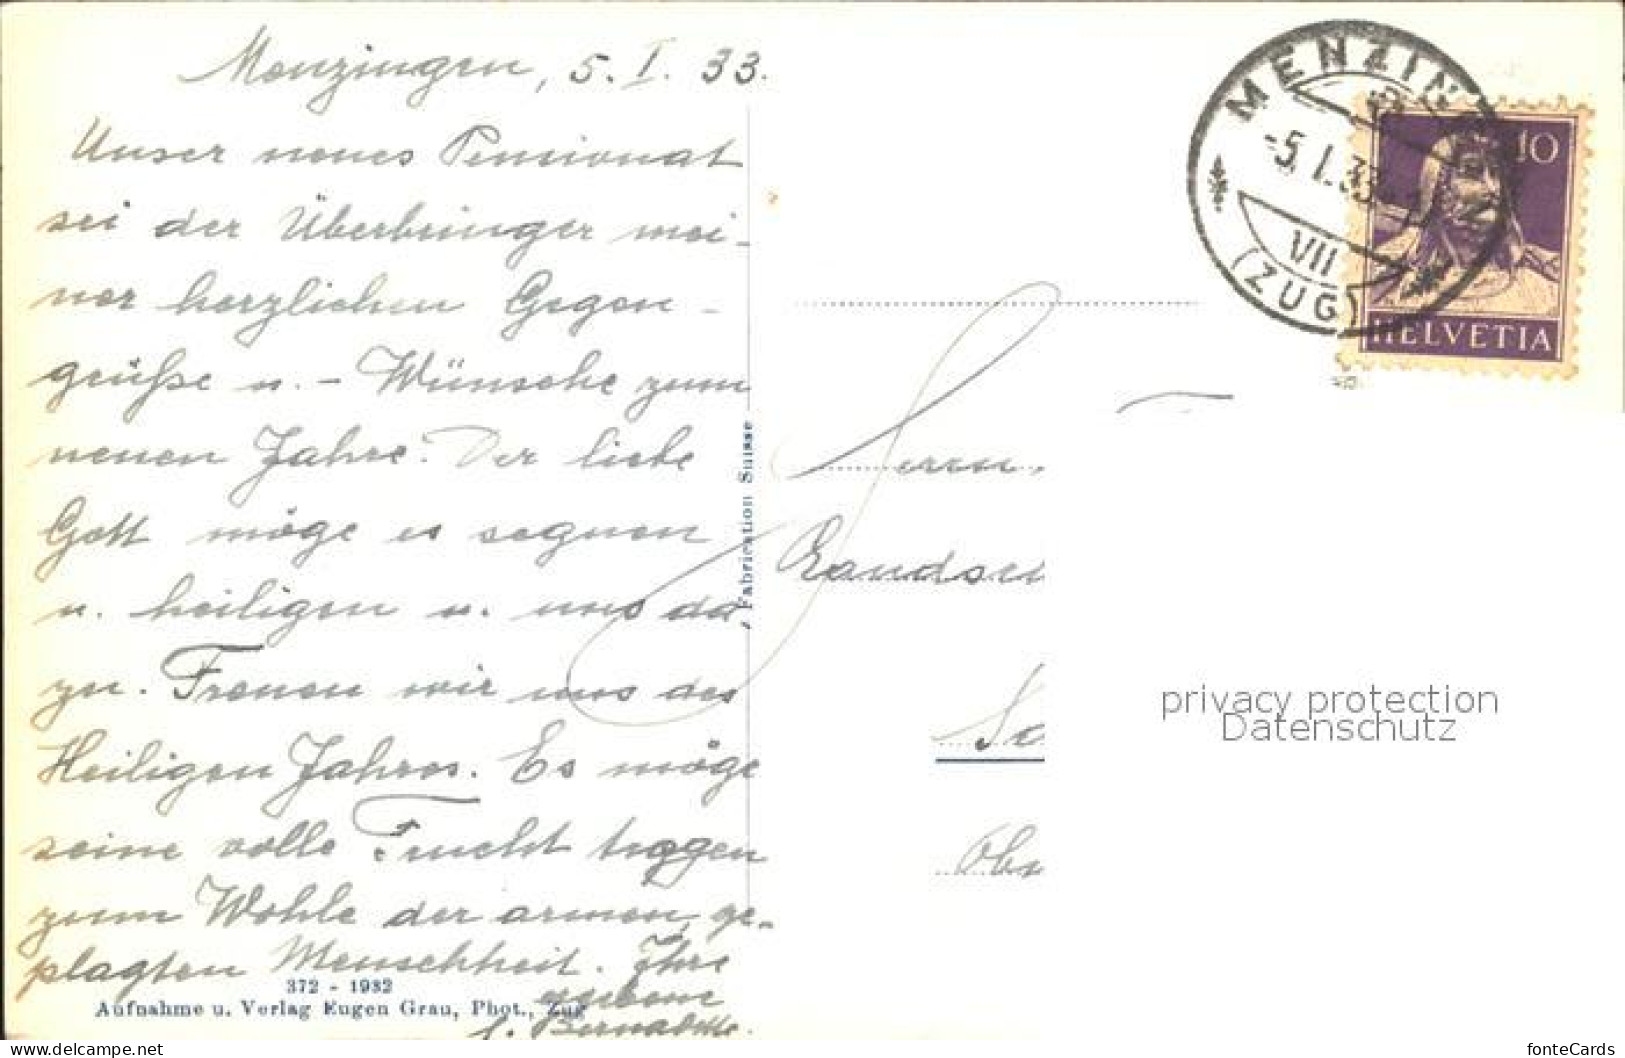 Menzingen, 5. I. 33.
Unser neues Pensionat
sei der Überbringer mei-
ner herzlichen Gegen-
grüße u. - Wünsche zum
neuen Jahre. Der liebe
Gott möge es segnen
u. heiligen u. uns da-
zu. Freuen wir uns des
Heiligen Jahres. Es möge
seine volle Frucht tragen
zum Wohle der armen, ge-
plagten Menschheit. Ihre
S. Bernadette.
372 - 1932
Aufnahme u. Verlag Eugen Grau, Phot., Zug
Fabrication Suisse
MENZIN
-5.I.33
VII
(ZUG)
10
HELVETIA
Herrn
privacy protection
Datenschutz
https://www.delcampe.net
fonteCards